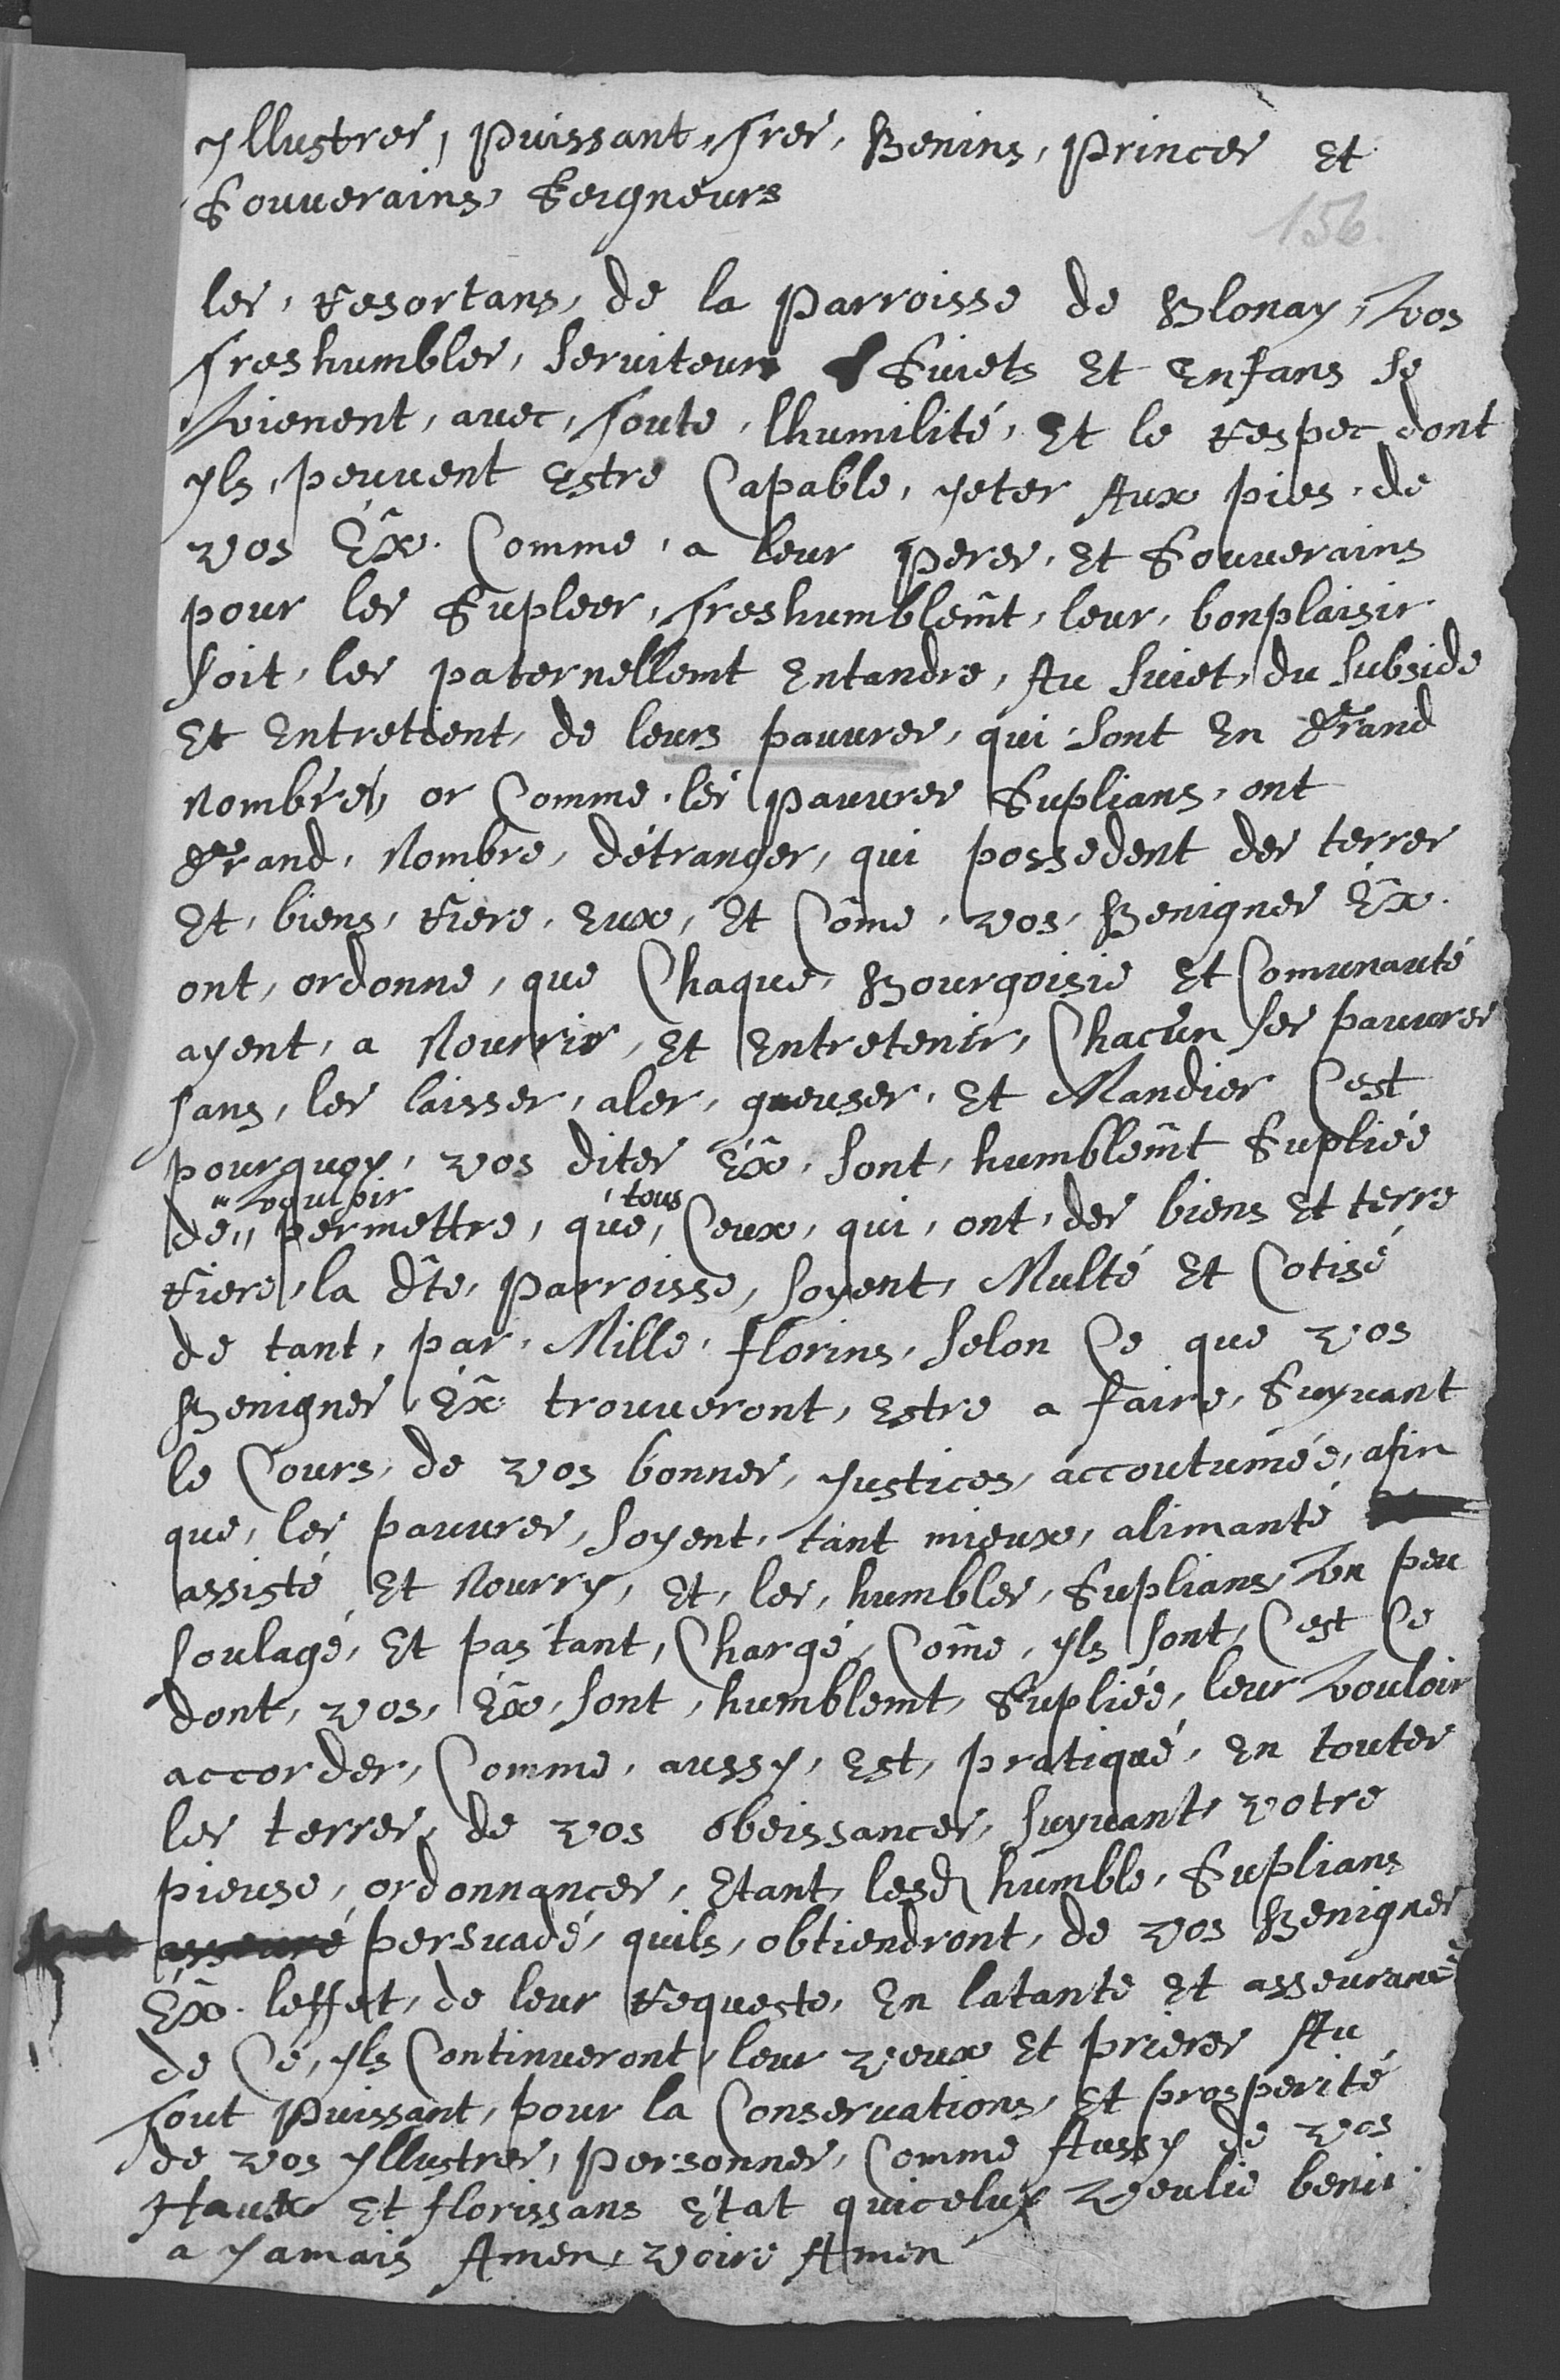 Yllustres, Puissant, Tres, Benins, Princes Et
Souverains, Seigneurs
156.
les, Resortans, de la Parroisse de Blonay, Vos
Treshumbles, serviteurs Suiets Et Enfans se
Vienent, avec, Toute, lhumilité, Et le Respec dont
yls, peuvent Estre Capable, yeter Aux pies, de
vos Ex. Comme, a leur Peres, Et Souverains
pour les Supleer, Treshumblemt, leur, bonplaisir
soit, les paternellemt Entandre, Au suiet, du subside
Et Entretient, de leurs pauvres, qui sont En Grand
Nombre, or Comme, les pauvres Suplians, ont
Grand, Nombre, détranger, qui possedent des terres
Et, biens, Riere, Eux, Et Côme, vos, Benignes Ex.
ont, ordonne, que Chaque, Bourgoisie Et Comunauté
ayent, a Nourrir, Et Entretenir, Chacun ses pauvres
sans, les laisser, aler, gueuser, Et Mandier Cest
pourquoy, vos dites Ex, sont, humblemt Supliée
vouloir tous
de permettre, que, Ceux, qui, ont, des biens Et terre
Riere, la dte, Parroisse, soyent, Multé Et Cotisé
de tant, par, Mille, florins, selon Ce que vos
Benignes, Ex trouveront, Estre a faire, Suyvant
le Cours, de vos bonnes, Justices, accoutumée, afin
que, les pauvres, soyent, tant mieux, alimanté
assisté Et Nourry, Et, les, humbles, Suplians, Un peu
soulagé, Et pas tant, Chargé, Côme, yls sont, Cest Ce
dont, vos, Ex, sont, humblemt, Supliée, leur Vouloir
accorder, Comme, aussy, Est, pratiqué, En toutes
les terres, de vos obeissances, suyvant, votre
pieuse, ordonnances, Etant, lesd humble, Suplians
asseuré persuadé, quils, obtiendront, de vos Benignes
Ex. leffet, de leur Requeste, En latante Et asseurance
de Ce, yls Continueront, leur veux Et prieres Au
Tout Puissant, pour la Conservations, Et prosperité
de vos yllustres, Personnes, Comme Aussy de vos
Haute Et florissans Etat quicelux Veulie benir
a Jamais Amen, voire Amen